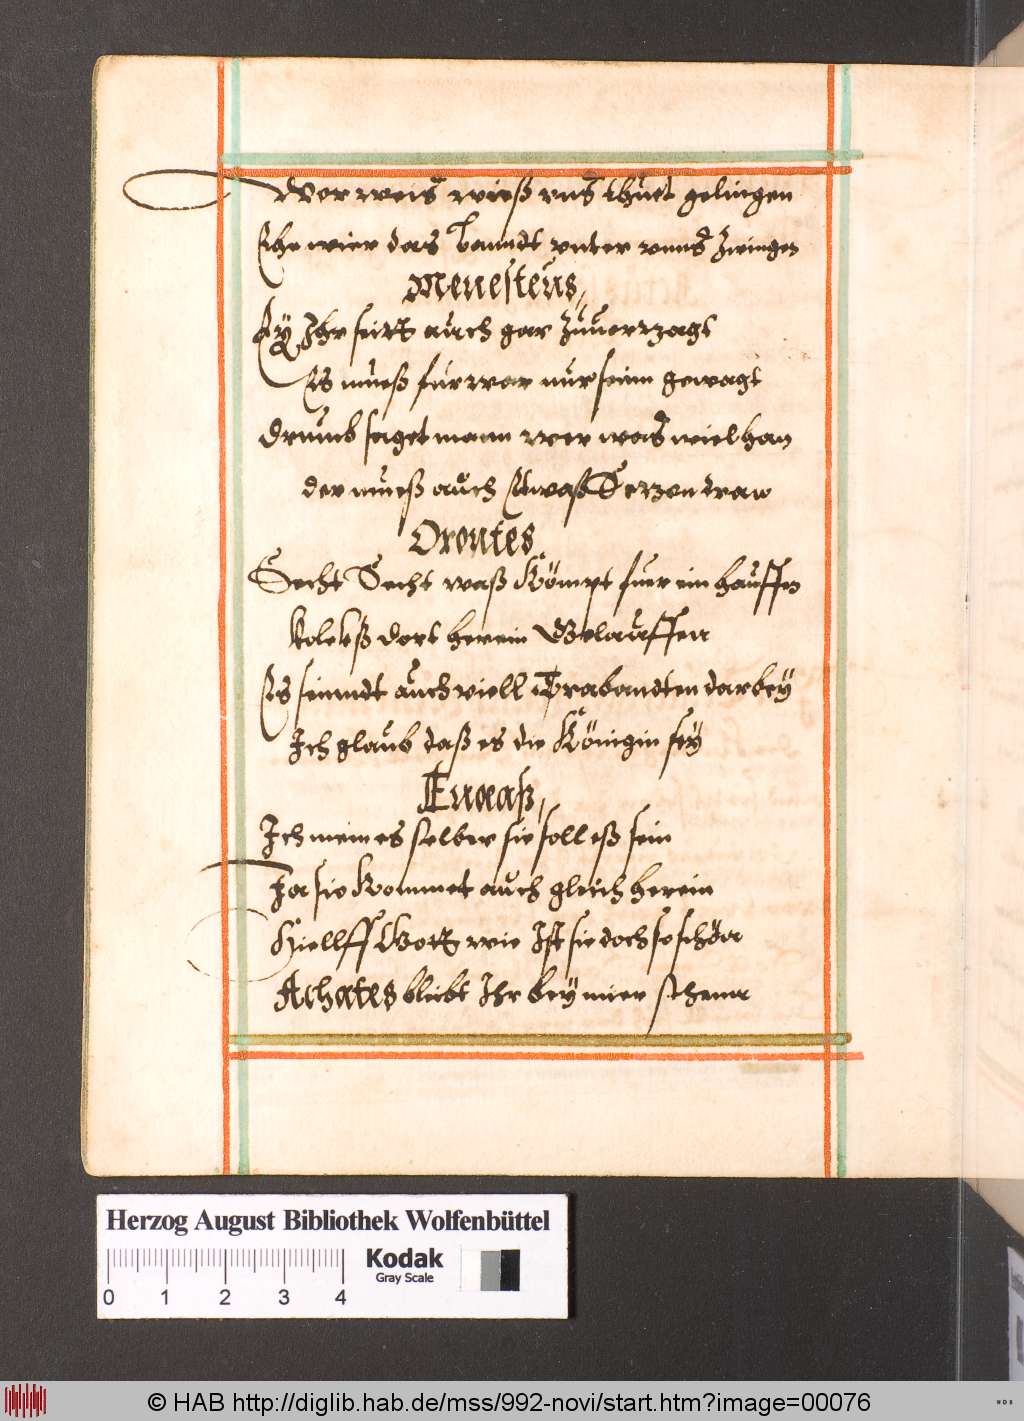 Wer weis wieß vns thuet gelingen
Ehe wier das Lanndt vnter vnns Zwingen
Menesteus,
Ey Ihr seitt auch gar Zuuerzagt
Es mueß fürwar nur seinn gewagt
Drumb saget mann wer was wiel han
der mueß auch Etwaß Setzen dran
Orontes
Secht Secht waß Kömpt fuer ein hauffen
Volckß dort herein Gelauffen
Es seinndt auch viell Trabandten darbey
Ich glaub daß es die Königin sey
Eneaß,
Ich mein es selber sie soll eß sein
Ja sie Kommet auch gleich herein
Hiellff Gott wie Ist sie doch so schön
Achates bleibt Ihr bey mier stehnn
Herzog August Bibliothek Wolfenbüttel
Kodak
Gray Scale
0 1 2 3 4
© HAB http://diglib.hab.de/mss/992-novi/start.htm?image=00076